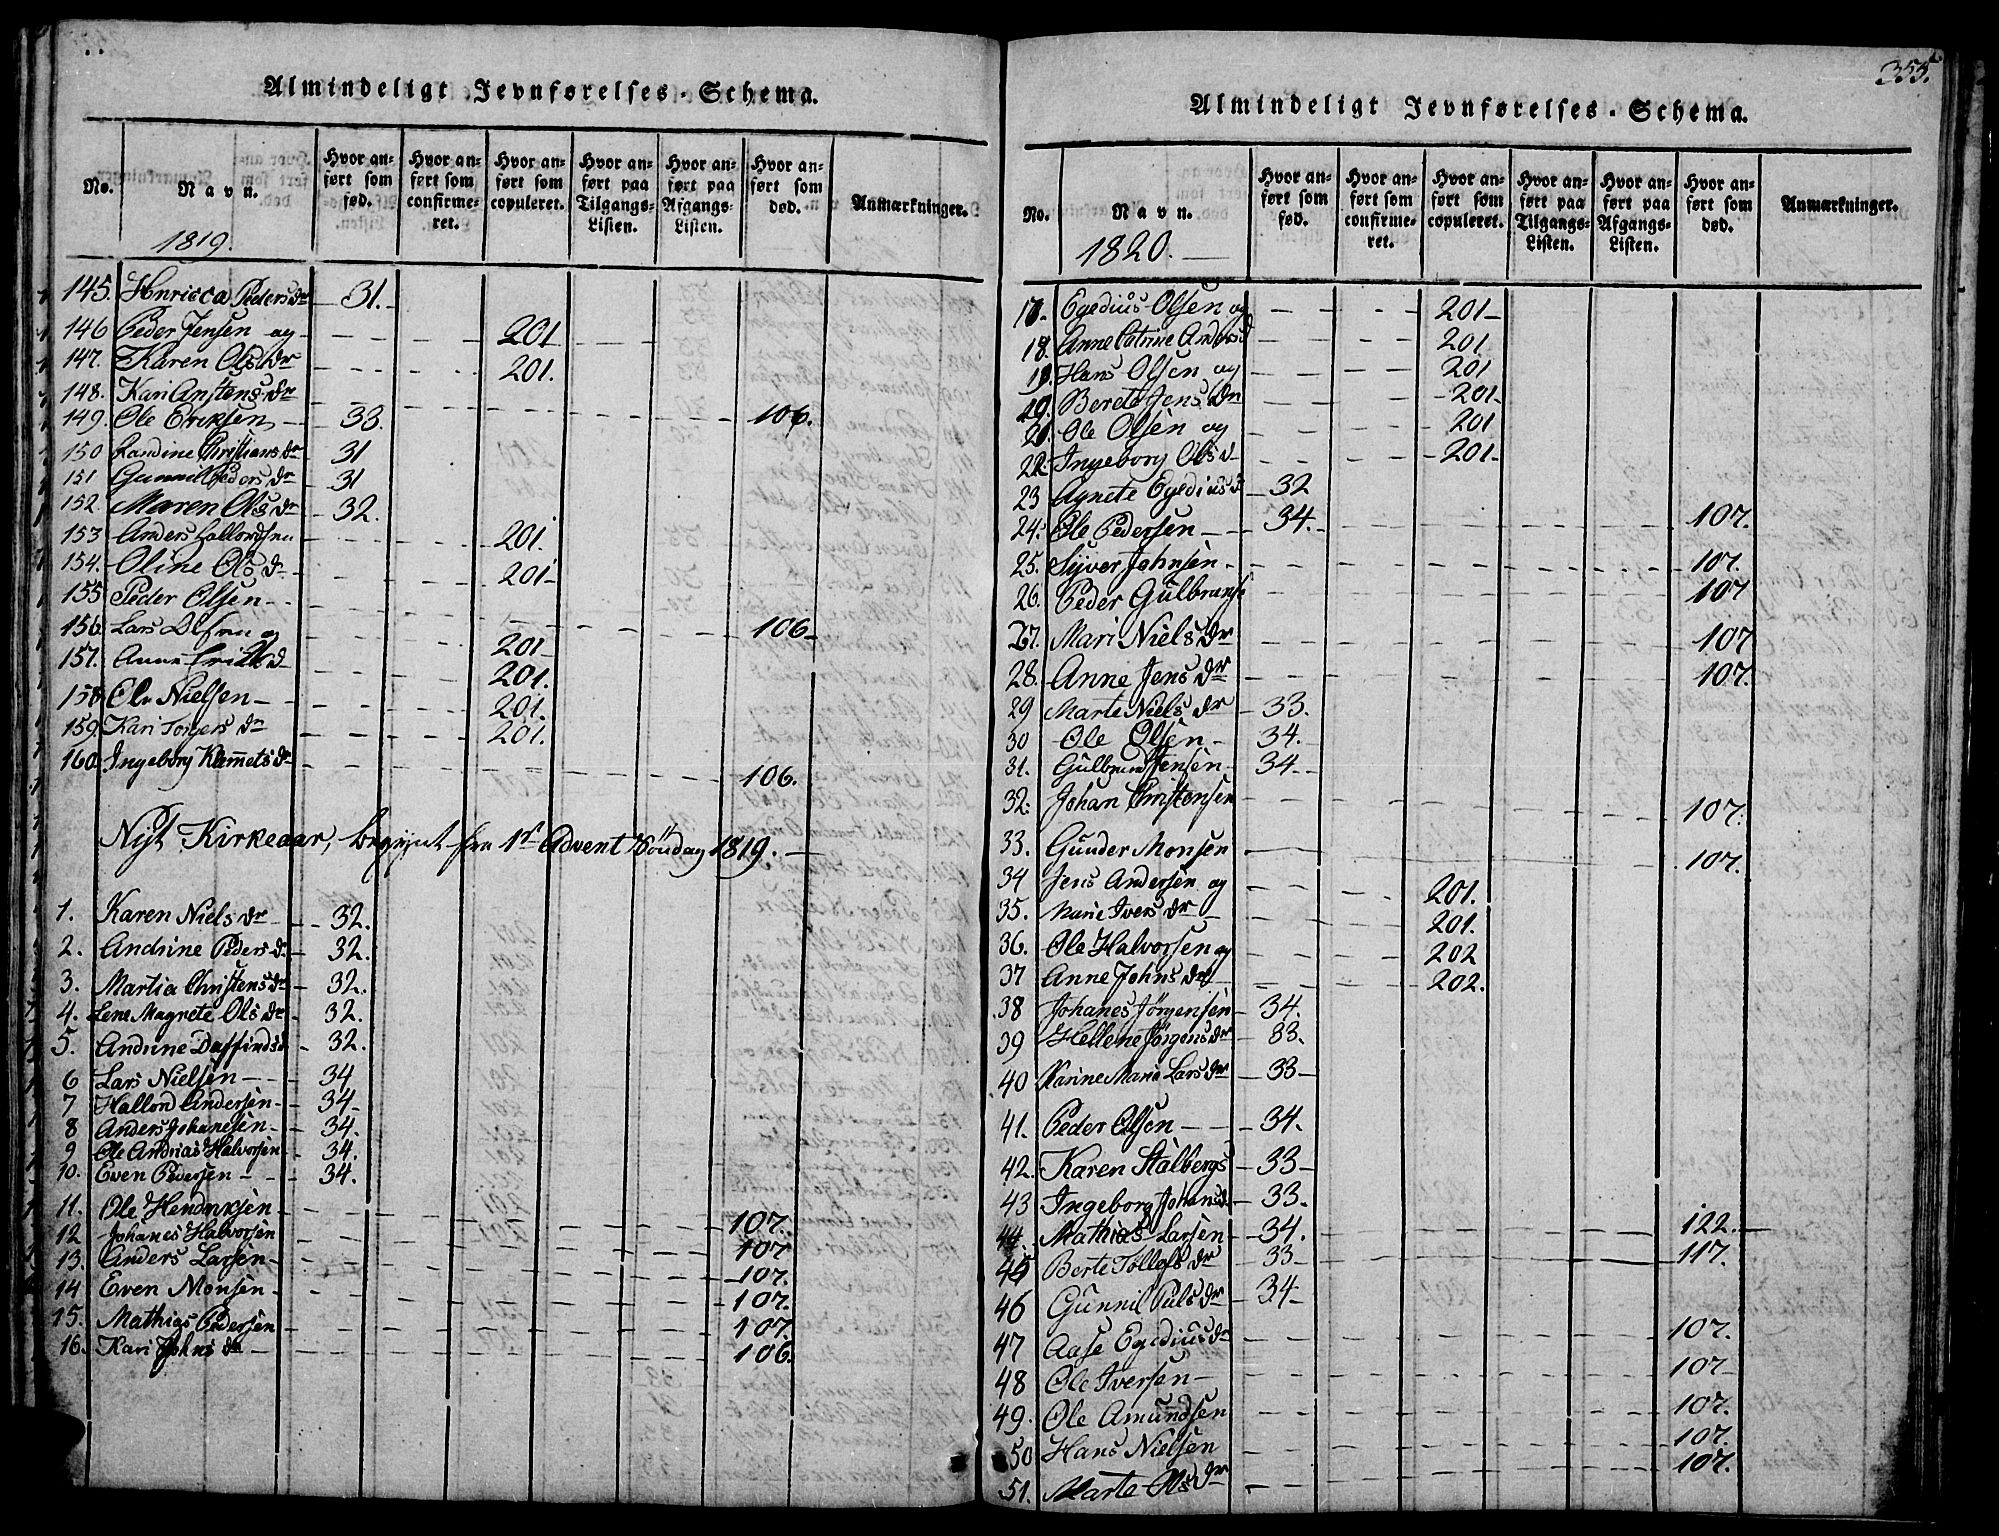 Almindeligt Jevnførelses-Schema.
No.
Navn.
Hvor anført som fød.
Hvor anført som confirmeret.
Hvor anført som copuleret.
Hvor anført paa Tilgangs-Listen.
Hvor anført paa Afgangs-Listen.
Hvor anført som død.
Anmærkninger.
1819.
145. Henricca Pedersdr 31.
146 Peder Jensen og 201
147. Karen Olsdr 201.
148. Kari Anstensdr 106.
149. Ole Eriksen 33.
150 Landine Christiansdr 31
151 Gunnil Pedersdr 31
152. Maren Olsdr 32.
153 Anders Hallordsen 201.
154. Oline Olsdr 201
155 Peder Olsen 106
156. Lars Olsen og 201
157. Anne Erichsd 201.
158 Ole Nielsen 201.
159. Kari Torgersdr 201.
160. Ingeborg Klemetsdr 106.
Nyt Kirkeaar, begynt fra 1ste Advent Söndag 1819.
1. Karen Nielsdr 32.
2. Andrine Pedersdr 32.
3. Martia Christensdr 32.
4. Lene Magrete Olsdr 32.
5. Andrine Daffindsd 32.
6 Lars Nielsen 34
7 Hallord Andersen 34
8 Anders Johanesen 34.
9 Ole Andrias Halvorsen 34.
10. Even Pedersen 34.
11. Ole Hendriksen 107.
12 Johanes Halvorsen 107
13. Anders Larsen 107.
14 Even Monsen 107.
15. Mathias Pedersen 107.
16. Kari Johnsdr 106.
355.
Almindeligt Jevnførelses-Schema.
No.
Navn.
Hvor anført som fød.
Hvor anført som confirmeret.
Hvor anført som copuleret.
Hvor anført paa Tilgangs-Listen.
Hvor anført paa Afgangs-Listen.
Hvor anført som død.
Anmærkninger.
1820.
17. Egedius Olsen og 201
18. Anne Catrine Andersd 201.
19. Hans Olsen og 201
20. Berete Jensdr 201
21. Ole Olsen og 201
22. Ingeborg Olsd 201
23 Agnete Egediusd 32
24. Ole Pedersen 34. 107.
25. Syver Johnsen 107.
26. Peder Gulbransen 107
27. Mari Nielsdr 107
28. Anne Jensdr 107.
29 Marte Nielsdr 33.
30 Ole Olsen 34.
31. Gulbrand Jensen 34
32. Johan Christensen 107.
33. Gunder Monsen 107.
34 Jens Andersen og 201.
35. Marie Iversdr 201.
36. Ole Halvorsen og 202
37 Anne Johnsdr 202.
38 Johanes Jörgensen 34.
39 Hellene Jörgensdr 33.
40 Karine Maria Larsdr 33
41. Peder Olsen 34.
42. Karen Stalbergs 33
43 Ingeborg Johansd 33.
44. Mathias Larsen 34. 122.
45 Berte Tollefsdr 33 117.
46 Gunnil Pulsdr 34
47 Aase Egediusdr 107.
48 Ole Iversen 107
49. Ole Amundsen 107.
50 Hans Nielsen 107.
51. Marte Olsdr 107.